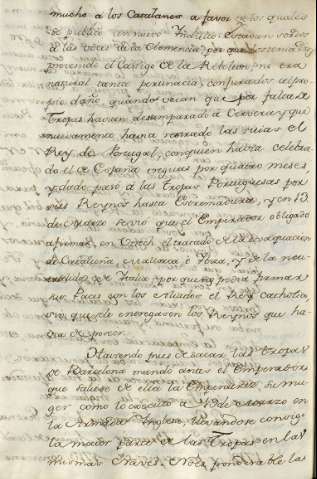 mucho a los Catalanes a favor de los quales
se publicó un nuevo Indulto: estavan sordos
à las vozes de la Clemencia, por que
el Castigo de la Rebelion, ni era
natural tanta pertinacia, conjurados al pro-
pio daño, quando veian que por falta de
Tropas havian desamparado à Cervera, y que
nuevamente havia retirado las suias el
Rey de Portugal, con quien havia celebra-
do el de España treguas por quatro meses
y dado paso à las Tropas Portuguesas por
sus Reynos hasta Estremadura, y en 13
de Marzo se vió que el Emperador obligado
à firmar, en Utrech el tratado de la evaquacion
de Cataluña, Mallorca è Iviza, y de la neu-
tralidad de Italia, por que no podia firmar
sus Paces con los Aliados el Rey Catholico
sin que le entregasen los Reynos que ha-
via de poner.
Haviendo pues de sacar las Tropas
de Barcelona mandó antes el Emperador
que saliese de ella la Emperatriz su mu-
ger como lo executó à 19 de Marzo en
la Armada Inglesa, llevandose consigo
la maior parte de las Tropas en las
mismas Naves. No es ponderable las